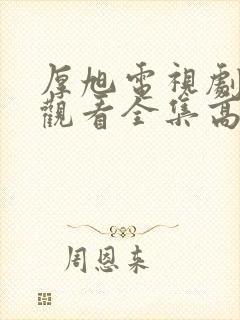 厚旭電視劇
觀看全集高
周恩来